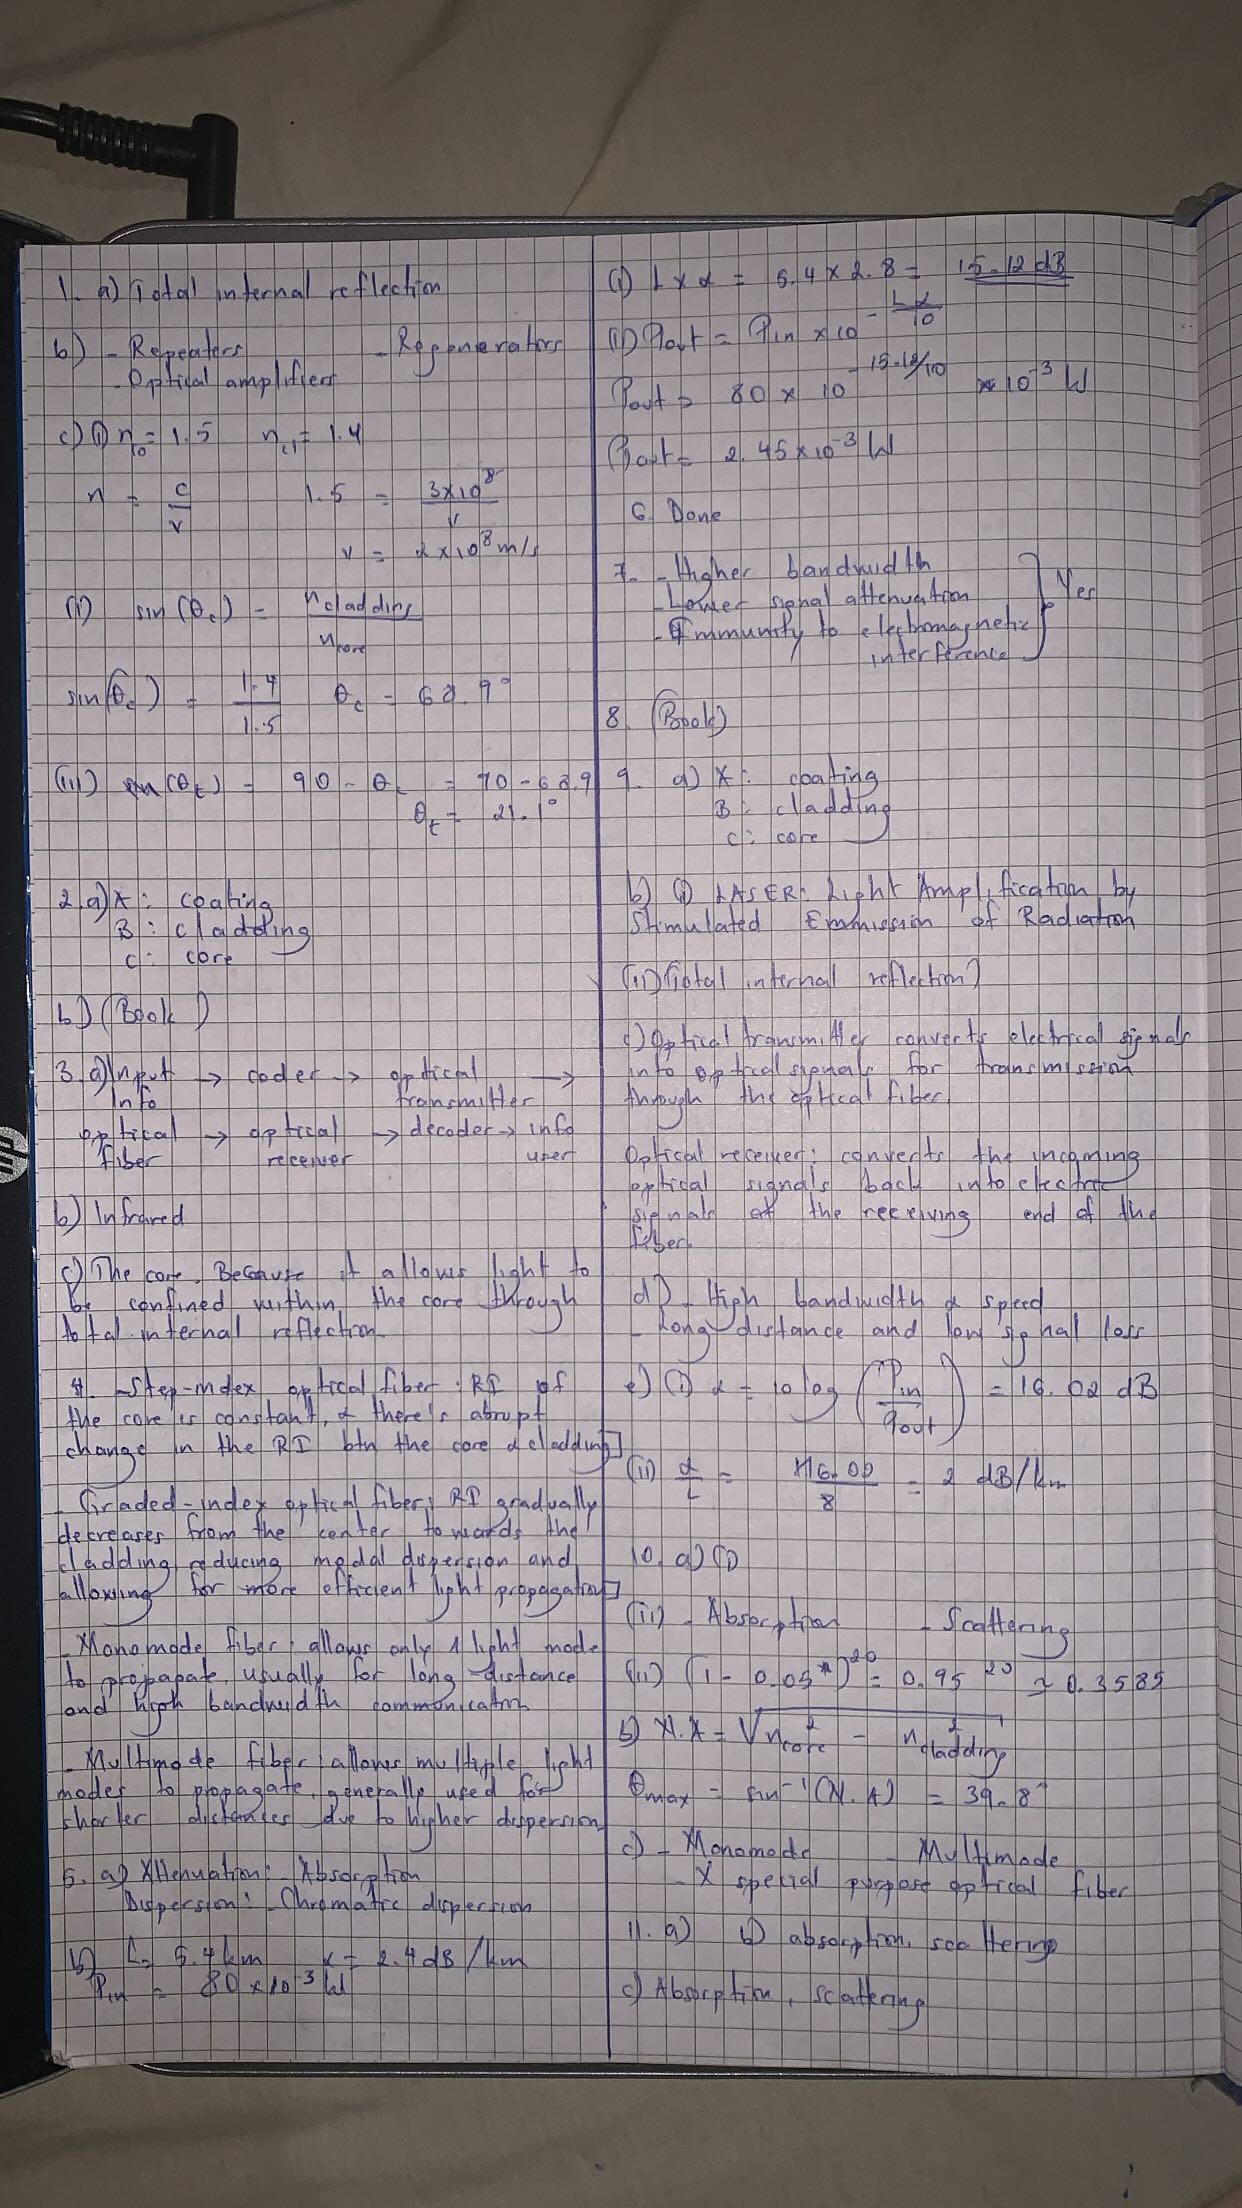 1. a) Total internal reflection
b) - Repeaters - Regenerators
- Optical amplifiers
c) (i) n = 1.5 ncl = 1.4
n = c/v 1.5 = 3x10^8/v
v = 2x10^8 m/s
(ii) sin(θc) = ncladding/ncore
sin(θc) = 1.4/1.5 θc = 68.9°
(iii) (θt) = 90 - θc = 90 - 68.9
θt = 21.1°
2. a) A: coating
B: cladding
C: core
b) (Book)
3. a) Input → coder → optical →
Info transmitter
optical → optical → decoder → info
fiber receiver user
b) Infrared
c) The core. Because it allows light to
be confined within the core through
total internal reflection.
4. - Step-index optical fiber: RI of
the core is constant, & there's abrupt
change in the RI btn the core & cladding]
- Graded-index optical fiber: RI gradually
decreases from the center towards the
cladding, reducing modal dispersion and
allowing for more efficient light propagation]
- Monomode fiber: allows only 1 light mode
to propapate, usually for long-distance
and high bandwidth communication
- Multimode fiber: allows multiple light
modes to propagate, generally used for
shorter distances due to higher dispersion
5. a) Attenuation: Absorption
Dispersion: - Chromatic dispersion
b) L = 5.4 km α = 2.4 dB/km
Pin = 80x10^-3 W
(i) L x α = 5.4 x 2.8 = 15.12 dB
(ii) Pout = Pin x 10^-Lα/10
Pout = 80 x 10^-15.12/10 x 10^-3 W
Pout = 2.45x10^-3 W
6. Done
7. - Higher bandwidth
- Lower signal attenuation Yes
- Immunity to electromagnetic
interference
8. (Book)
9. a) A: coating
B: cladding
C: core
b) (i) LASER: Light Amplification by
Stimulated Emmission of Radiation
(ii) (Total internal reflection)
c) Optical transmitter converts electrical signals
into optical signals for transmission
through the optical fiber.
Optical receiver: converts the incoming
optical signals back into electric
signals at the receiving end of the
fiber.
d) - High bandwidth & speed
- Long-distance and low signal loss
e) (i) α = 10 log (Pin/Pout) = 16.02 dB
(ii) α/L = 16.02/8 = 2 dB/km
10. a) (i)
(ii) - Absorption - Scattering
(iii) (1 - 0.05)^20 = 0.95^20 ≈ 0.3585
b) N.A = √n²core - n²cladding
θmax = sin^-1 (N.A) = 39.8°
c) - Monomode - Multimode
- X special purpose optical fiber
11. a) b) absorption, scattering
c) Absorption, scattering